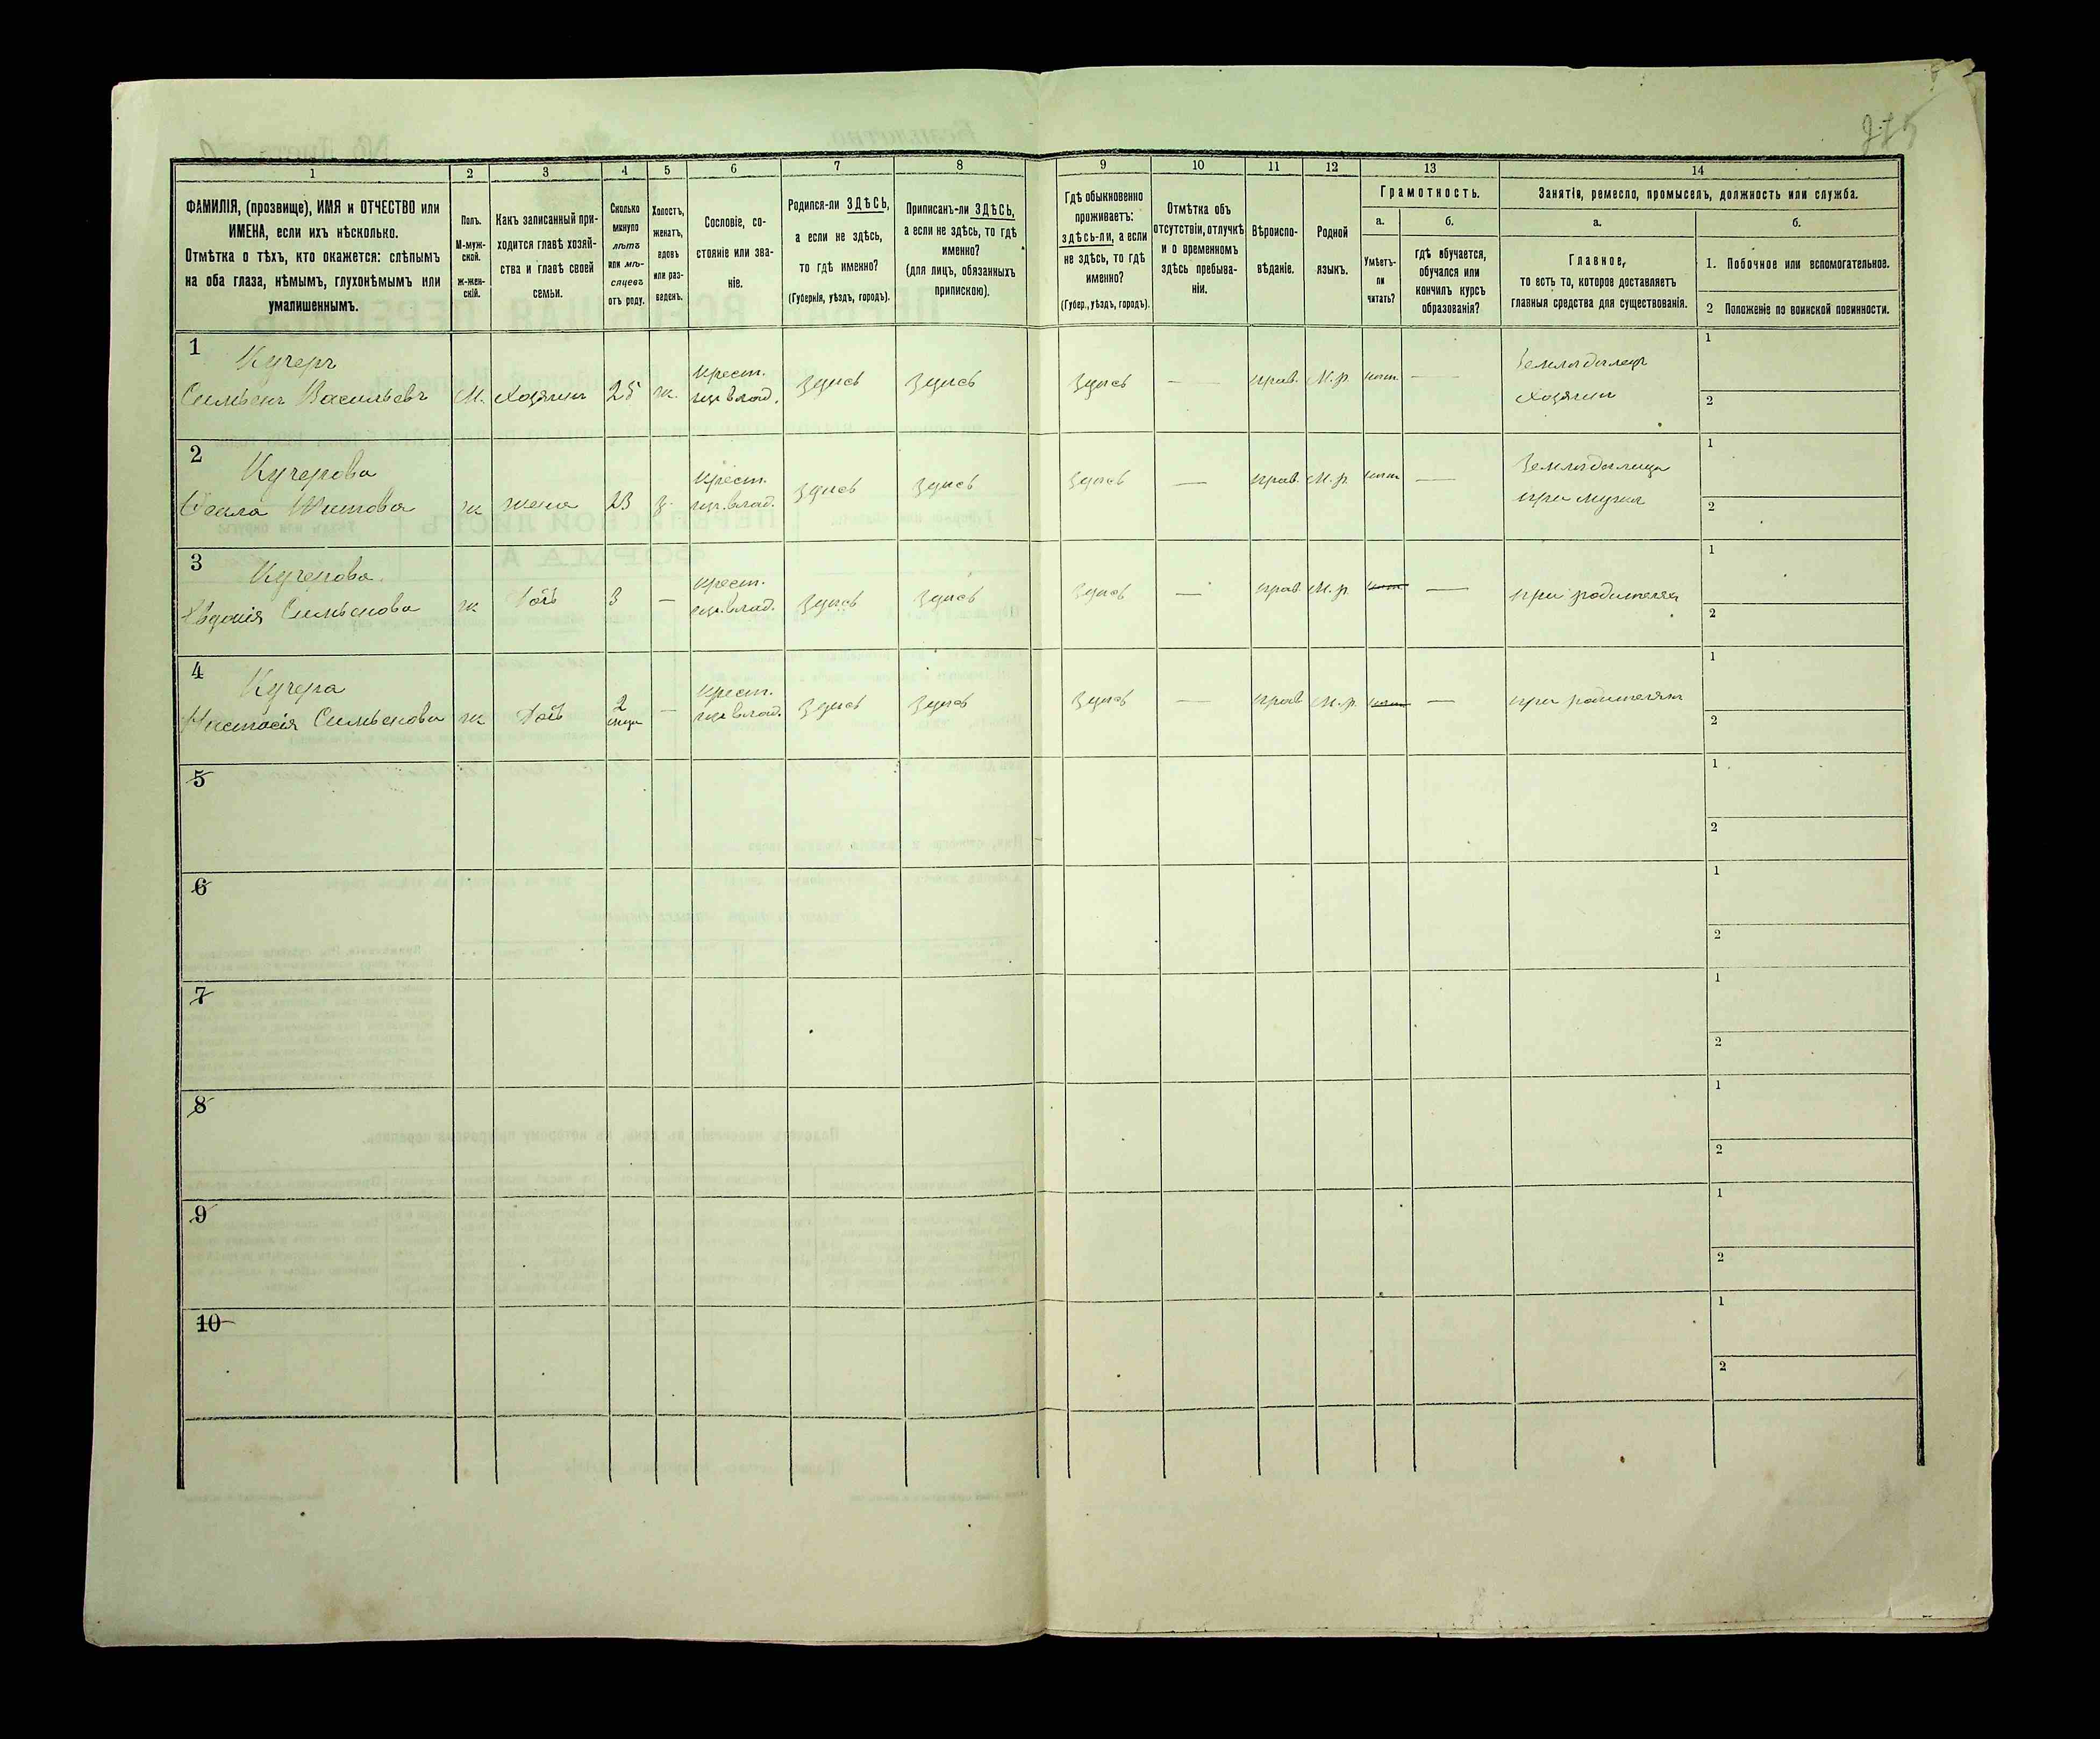 1 2 3 4 5 6 7 8 9 10 11 12 13 14
ФАМИЛІЯ, (прозвище), ИМЯ и ОТЧЕСТВО или
ИМЕНА, если ихъ нѣсколько.
Отмѣтка о тѣхъ, кто окажется: слѣпымъ
на оба глаза, нѣмымъ, глухонѣмымъ или
умалишеннымъ.
Полъ.
М-муж-
ской.
ж-жен-
скій.
Какъ записанный при-
ходится главѣ хозяй-
ства и главѣ своей
семьи.
Сколько
минуло
лѣтъ
или мѣ-
сяцевъ
отъ роду.
Холостъ,
женатъ,
вдовъ
или раз-
веденъ.
Сословіе, со-
стояніе или зва-
ніе.
Родился-ли ЗДѢСЬ,
а если не здѣсь,
то гдѣ именно?
(Губернія, уѣздъ, городъ).
Приписанъ-ли ЗДѢСЬ,
а если не здѣсь, то гдѣ
именно?
(для лицъ, обязанныхъ
припискою).
Гдѣ обыкновенно
проживаетъ:
здѣсь-ли, а если
не здѣсь, то гдѣ
именно?
(Губер., уѣздъ, городъ).
Отмѣтка объ
отсутствіи, отлучкѣ
и о временномъ
здѣсь пребыва-
ніи.
Вѣроиспо-
вѣданіе.
Родной
языкъ.
Грамотность.
а.
Умѣетъ-
ли
читать?
б.
гдѣ обучается,
обучался или
кончилъ курсъ
образованія?
Занятія, ремесло, промыселъ, должность или служба.
а.
Главное,
то есть то, которое доставляетъ
главныя средства для существованія.
б.
1. Побочное или вспомогательное.
2 Положеніе по воинской повинности.
1 Кучеръ крест. Земледѣлецъ 1
Симѣенъ Васильевъ М. Хозяинъ 25 ж. здѣсь здѣсь здѣсь — прав. М.р. нѣт — Хозяинъ 2
2 Кучерова крест. Земледѣлица 1
Титова ж жена 23 з. здѣсь здѣсь здѣсь — прав. М.р. нѣт — при мужѣ 2
3 Кучерова крест. 1
Евдокія Симѣенова ж дочь 3 — здѣсь здѣсь здѣсь — прав. М.р. нѣт — при родителях 2
4 Кучера крест. 1
Настасія Симѣенова ж дочь 2 — здѣсь здѣсь здѣсь — прав М.р. нѣт — при родителях 2
5 1
2
6 1
2
7 1
2
8 1
2
9 1
2
10 1
2